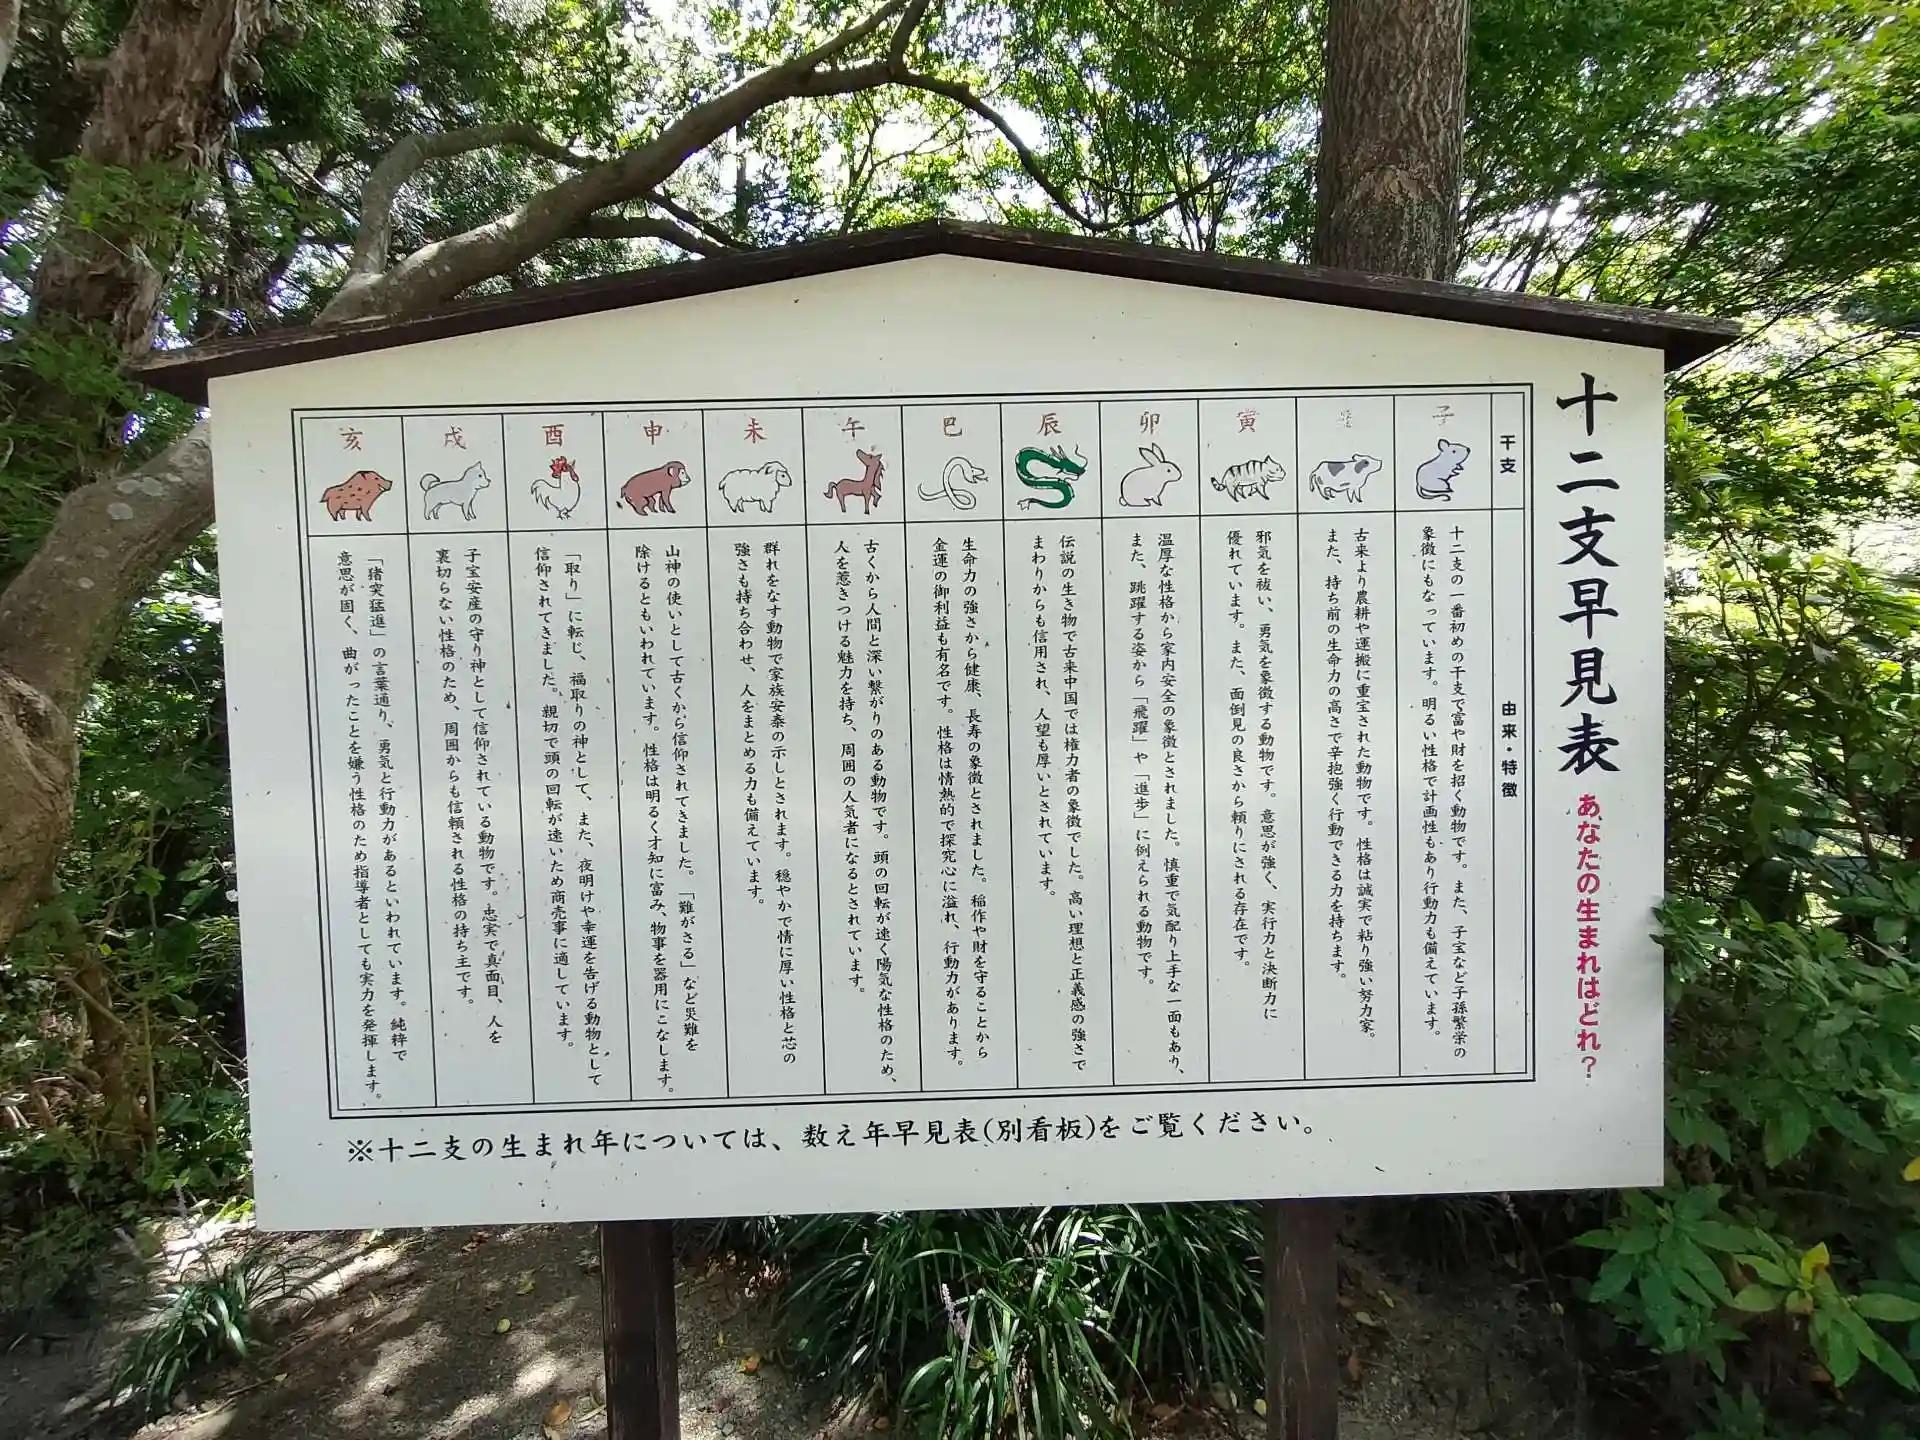 十二支早見表 あなたの生まれはどれ？
干支
由来・特徴
子
十二支の一番初めの干支で富や財を招く動物です。また、子宝など子孫繁栄の
象徴にもなっています。明るい性格で計画性もあり行動力も備えています。
古来より農耕や運搬に重宝された動物です。性格は誠実で粘り強い努力家。
また、持ち前の生命力の高さで辛抱強く行動できる力を持ちます。
寅
邪気を祓い、勇気を象徴する動物です。意思が強く、実行力と決断力に
優れています。また、面倒見の良さから頼りにされる存在です。
卯
温厚な性格から家内安全の象徴とされました。慎重で気配り上手な一面もあり、
また、跳躍する姿から「飛躍」や「進歩」に例えられる動物です。
辰
伝説の生き物で古来中国では権力者の象徴でした。高い理想と正義感の強さで
まわりからも信用され、人望も厚いとされています。
巳
生命力の強さから健康、長寿の象徴とされました。稲作や財を守ることから
金運の御利益も有名です。性格は情熱的で探究心に溢れ、行動力があります。
午
古くから人間と深い繋がりのある動物です。頭の回転が速く陽気な性格のため、
人を惹きつける魅力を持ち、周囲の人気者になるとされています。
未
群れをなす動物で家族安泰の示しとされます。穏やかで情に厚い性格と芯の
強さも持ち合わせ、人をまとめる力も備えています。
申
山神の使いとして古くから信仰されてきました。「難がさる」など災難を
除けるともいわれています。性格は明るく才知に富み、物事を器用にこなします。
酉
「取り」に転じ、福取りの神として、また、夜明けや幸運を告げる動物として
信仰されてきました。親切で頭の回転が速いため商売事に適しています。
戌
子宝安産の守り神として信仰されている動物です。忠実で真面目、人を
裏切らない性格のため、周囲からも信頼される性格の持ち主です。
亥
「猪突猛進」の言葉通り、勇気と行動力があるといわれています。純粋で
意思が固く、曲がったことを嫌う性格のため指導者としても実力を発揮します。
※十二支の生まれ年については、数え年早見表(別看板)をご覧ください。